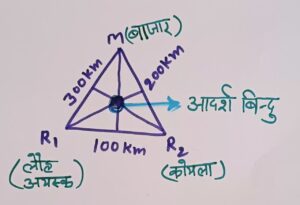 M(बाजार)
300km
200km
आदर्श बिन्दु
R1
R2
100km
(लौह
अयस्क)
(कोयला)